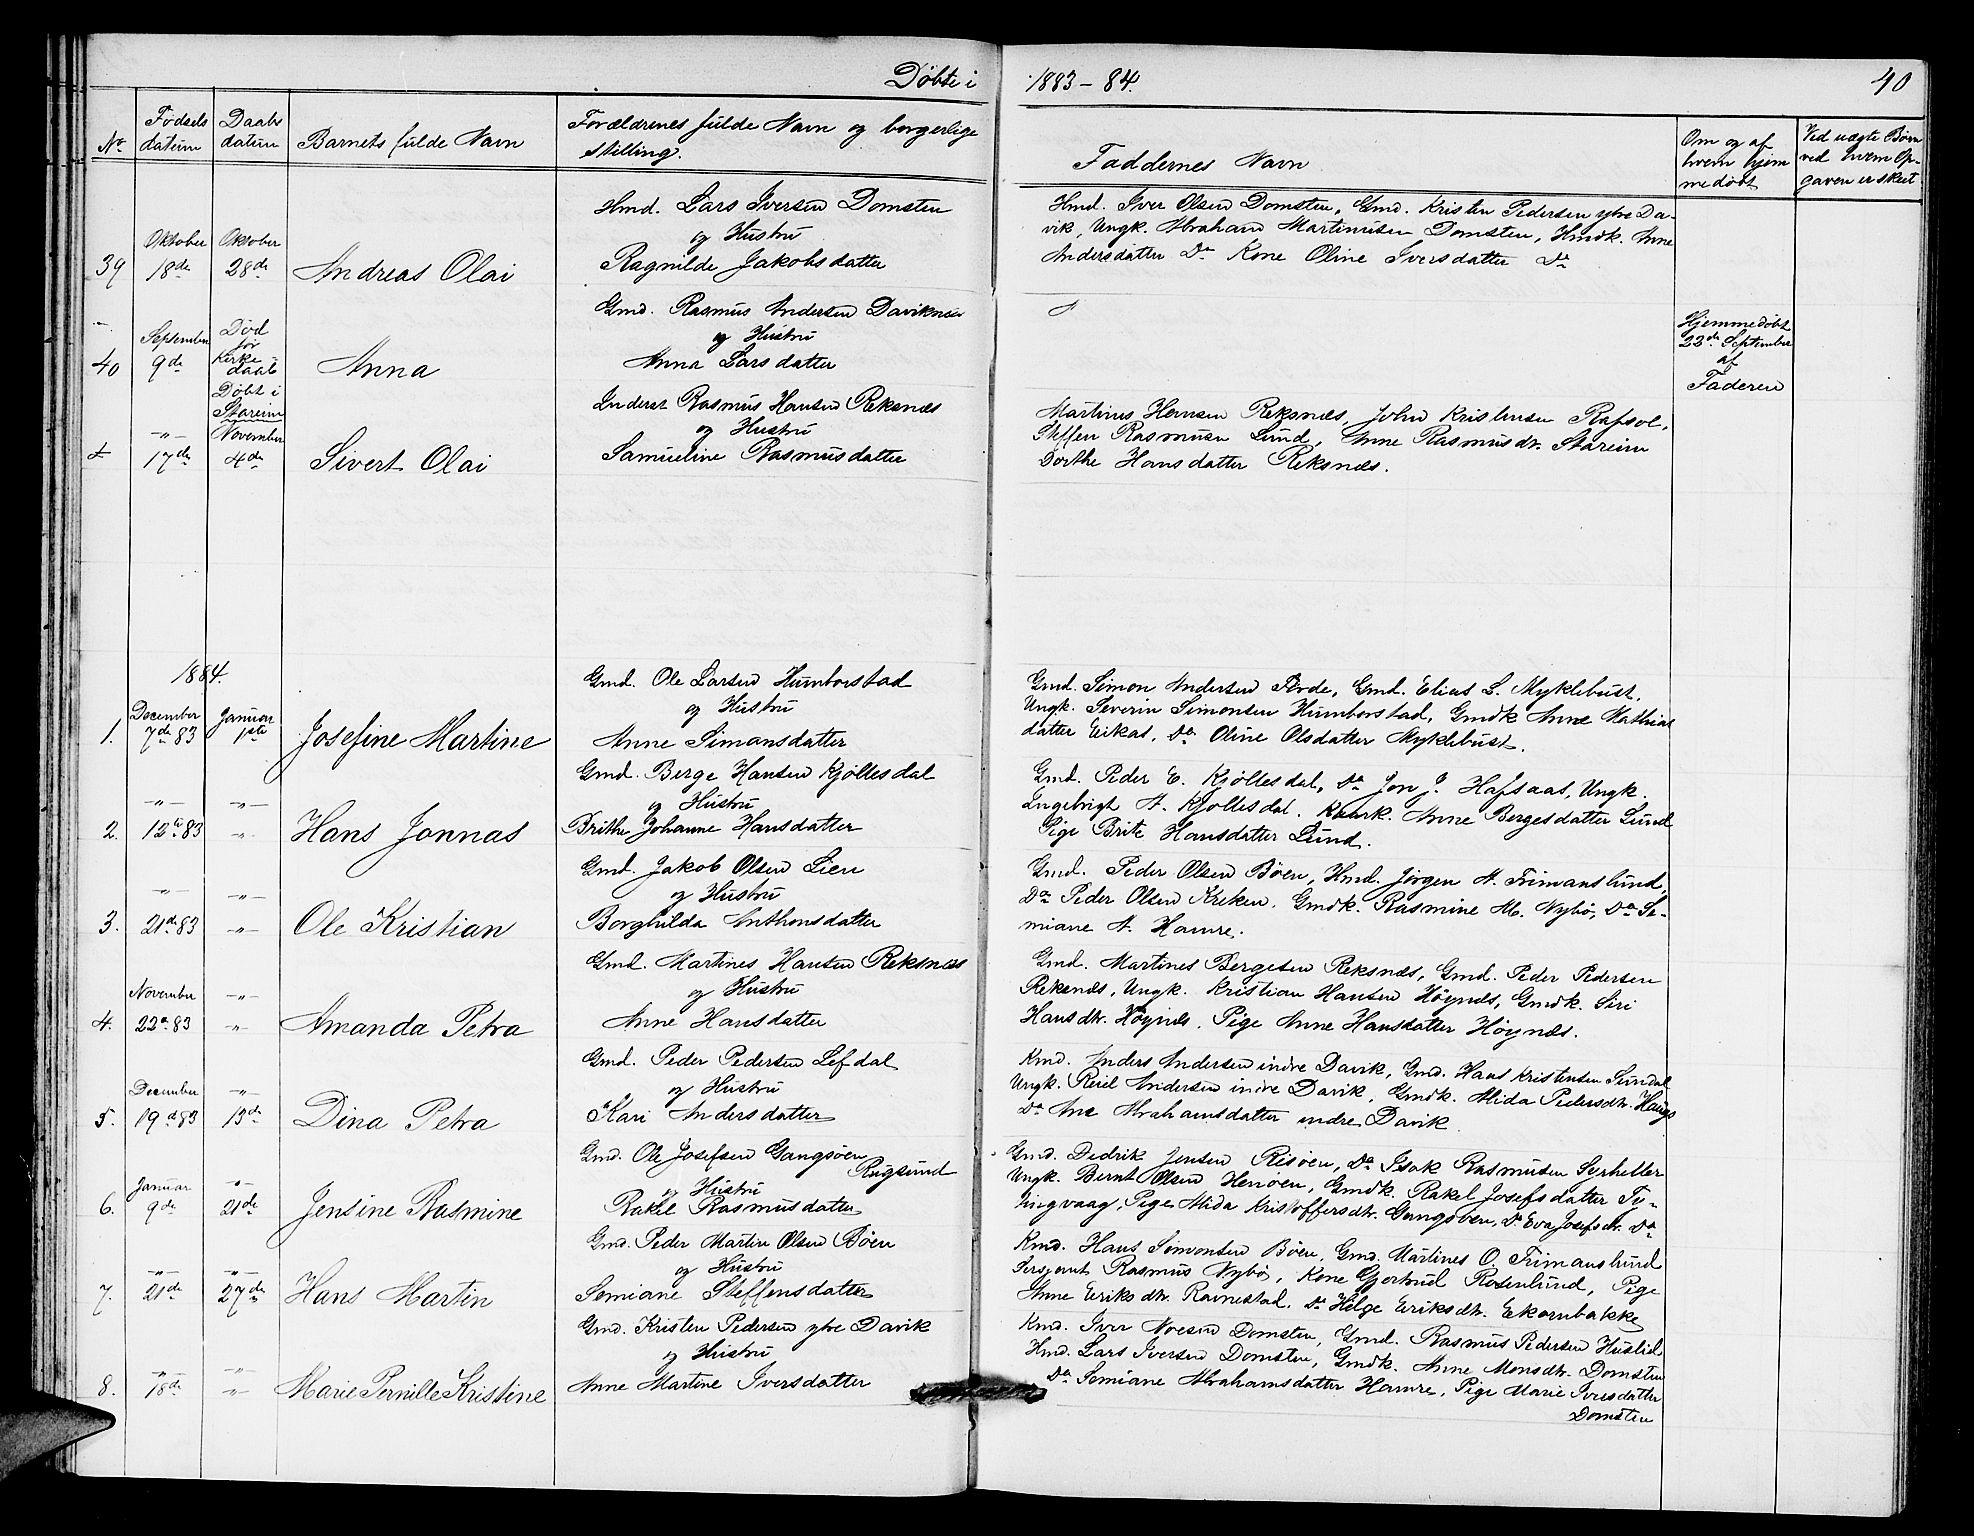 Døbte i 1883-84.
40
No
Fødsels datum
Daabs datum
Barnets fulde Navn
Forældrenes fulde Navn og borgerlige Stilling.
Faddernes Navn
Om og af hvem hjemmedøbt
Ved uægte Børn ved hvem Opgaven er skeet
39
Oktober 18de
Oktober 28de
Andreas Olai
Hmd. Lars Iversen Domsten
og Hustru
Ragnilde Jakobsdatter
Hmd. Iver Olsen Domsten, Gmd. Kristen Pedersen ytre Da-
vik, Ungk. Abraham Martinusen Domsten, Hmdk. Anne
Andersdatter Do Kone Oline Iversdatter Do
40
September 9de
Død før Kirkedaab
Anna
Gmd. Rasmus Andersen Daviknes
og Hustru
Anna Larsdatter
Hjemmedøbt
22de September
af
Faderen
-"-
17de
Døbt i Stareim
November 4de
Sivert Olai
Inderst Rasmus Hansen Reksnæs
og Hustru
Samueline Rasmusdatter
Martinus Hansen Reksnæs, John Kristensen
Steffen Rasmusen Lund, Anne Rasmusdtr. Stareim
Dorthe Hansdatter Reksnæs.
1884.
1.
December 7de 83
Januar 1ste
Josefine Martine
Gmd. Ole Larsen Humborstad
og Hustru
Anne Simonsdatter
Gmd. Simon Andersen Førde, Gmd. Elias L. Myklebust,
Ungk. Severin Simonsen Humborstad, Gmdk Anne Mathias
datter Eikas, Do Oline Olsdatter Myklebust.
2.
-"-
12te 83
-"-
-"-
Hans Jonnas
Gmd. Berge Hansen Kjøllesdal
og Hustru
Brithe Johanne Hansdatter
Gmd. Peder E. Kjøllesdal, Do Jon J. Hafsaas, Ungk.
Ingebrigt A. Kjøllesdal. Anne Bergesdatter Lund
Pige Brite Hansdatter Lund.
3.
-"-
21de 83
-"-
-"-
Ole Kristian
Gmd. Jakob Olsen Lien
og Hustru
Borghilda Anthonsdatter
Gmd. Peder Olsen Bøen, Hmd. Jørgen A. Frimanslund,
Do Peder Olsen Kreken, Gmdk. Rasmine M. Nybø, Do Se-
miane A. Hamre.
4.
November 22de 83
-"-
-"-
Amanda Petra
Gmd. Martines Hansen Reksnæs
og Hustru
Anne Hansdatter
Gmd. Martines Bergesen Reksnæs, Gmd. Peder Pedersen
Reksnæs, Ungk. Kristian Hansen Høynæs, Gmdk. Siri
Hansdtr. Høynæs, Pige Anne Hansdatter Høynæs.
5.
December 19de 83
-"-
13de
Dina Petra
Gmd. Peder Pedersen Lefdal
og Hustru
Kari Andersdatter
Kmd. Anders Andersen indre Davik, Gmd. Hans Kristensen Sundal
Ungk. Reiel Andersen indre Davik, Gmdk. Alida Pedersdtr. Haugs
Do Ane Abrahamsdatter indre Davik.
6.
Januar 9de
-"-
21de
Jensine Rasmine
Gmd. Ole Josefsen Gangsøen
Rugsund
og Hustru
Rakel Rasmusdatter
Gmd. Dedrik Jensen Risøen, Do Isak Rasmusen Gyrheller
Ungk. Bernt Olsen Henøen, Gmdk. Rakel Josefsdatter Ty-
tingvaag, Pige Alida Kristoffersdtr. Gangsøen, Do Eva Josefsdtr. Do
7.
-"-
21de
-"-
27de
Hans Martin
Gmd. Peder Martin Olsen Bøen
og Hustru
Semiane Steffensdatter
Kmd. Hans Simonsen Bøen, Gmd. Martines O. Frimanslund
Sersjant Rasmus Nybø, Kone Gjertrud Rosenlund, Pige
Anne Eriksdtr. Ravnestad, Do Helge Eriksdtr. Ekornbakke
8.
-"-
18de
-"-
-"-
Marie Pernille Kristine
Gmd. Kristen Pedersen ytre Davik
og Hustru
Anne Martine Iversdatter
Kmd. Iver Domsten, Gmd. Rasmus Pedersen Huslid
Hmd. Lars Iversen Domsten, Gmdk. Anne Monsdtr. Domsten
Do Semiane Abrahamsdatter Hamre, Pige Marie Iversdatter
Domsten